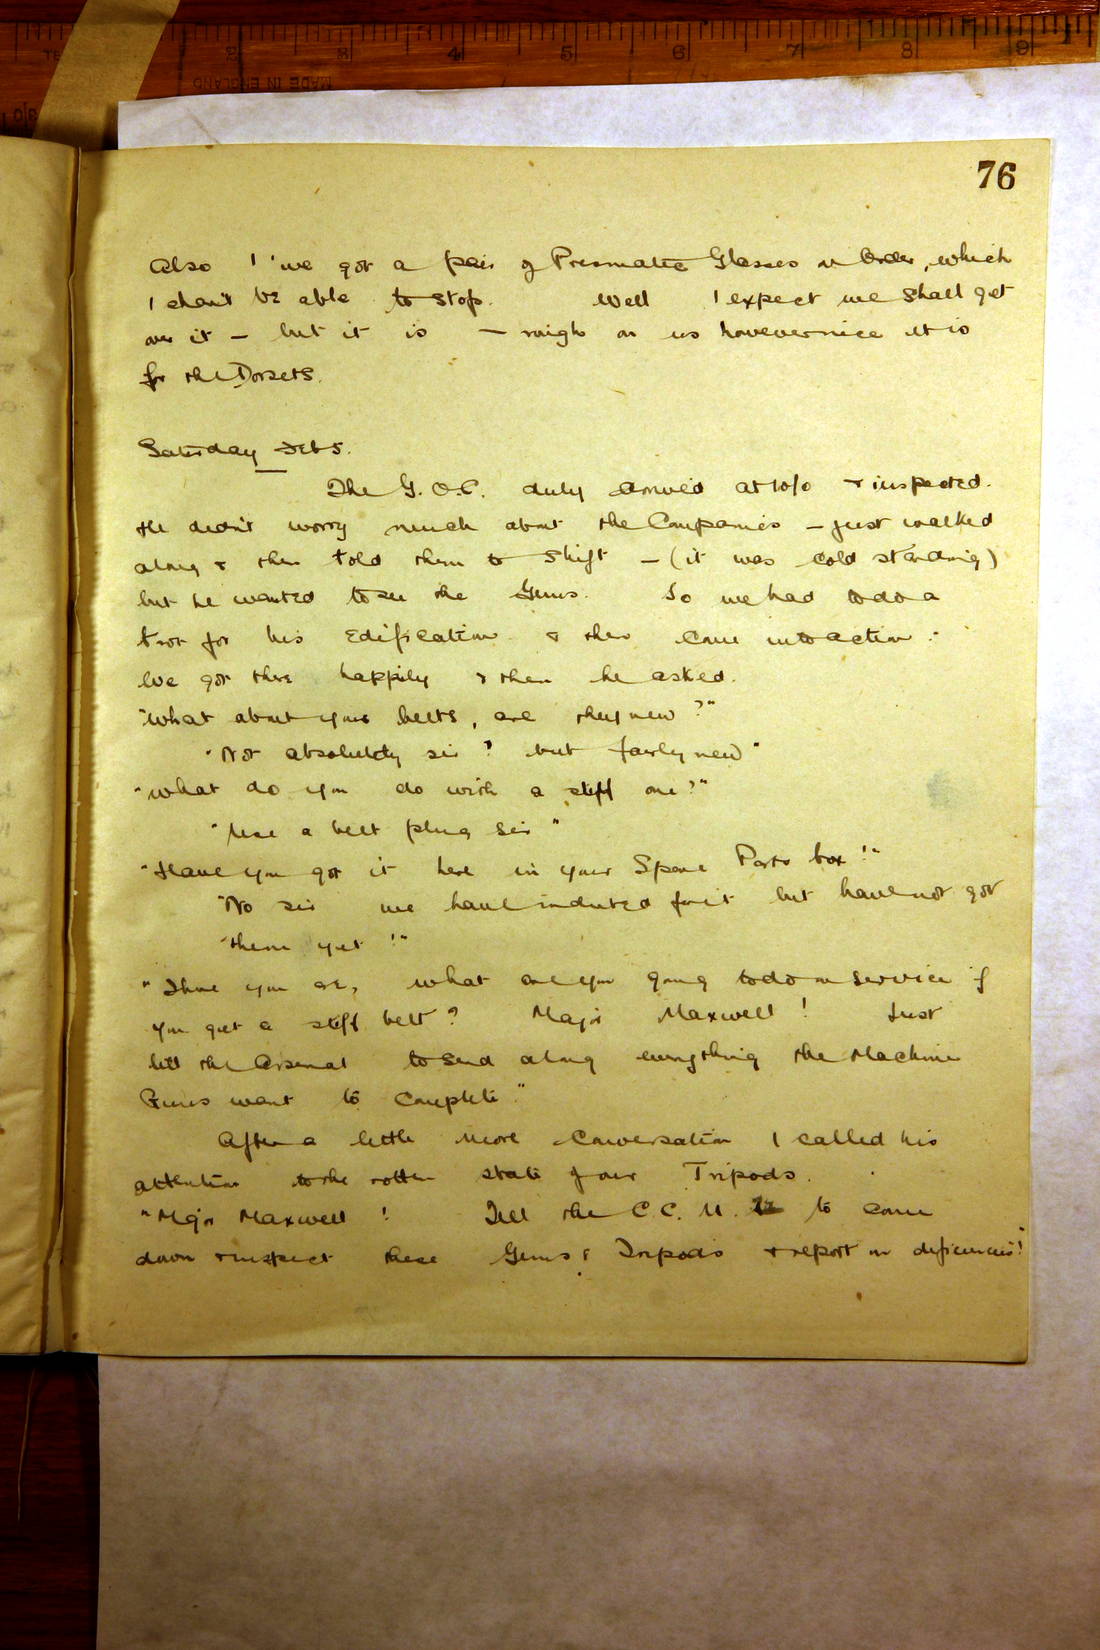 2 3 4 5 6 7 8 9
MADE IN ENGLAND
76
Also I've got a pair of Prismatic Glasses on Order, which
I shan't be able to stop. Well I expect we shall get
over it – but it is – rough on us however nice it is
for the Dorsets.
Saturday Feb 5.
The G.O.C. duly arrived at 10/0 & inspected.
He didn't worry much about the Companies – just walked
along & then told them to shift – (it was cold standing)
but he wanted to see the Guns. So we had to do a
trot for his edification & then come into action.
We got there happily & then he asked.
"What about your belts, are they new?"
"Not absolutely sir? but fairly new"
"What do you do with a stiff one?"
"Use a belt plug sir"
"Have you got it here in your Spare Parts box!"
"No sir we have indented for it but have not got
them yet!"
"There you are, what are you going to do on service if
you get a stiff belt? Major Maxwell! Just
tell the Arsenal to send along everything the Machine
Guns want to complete"
After a little more conversation I called his
attention to the rotten state of our Tripods.
"Major Maxwell! Tell the C.C.U. to come
down & inspect these Guns & Tripods & report on deficiencies!"